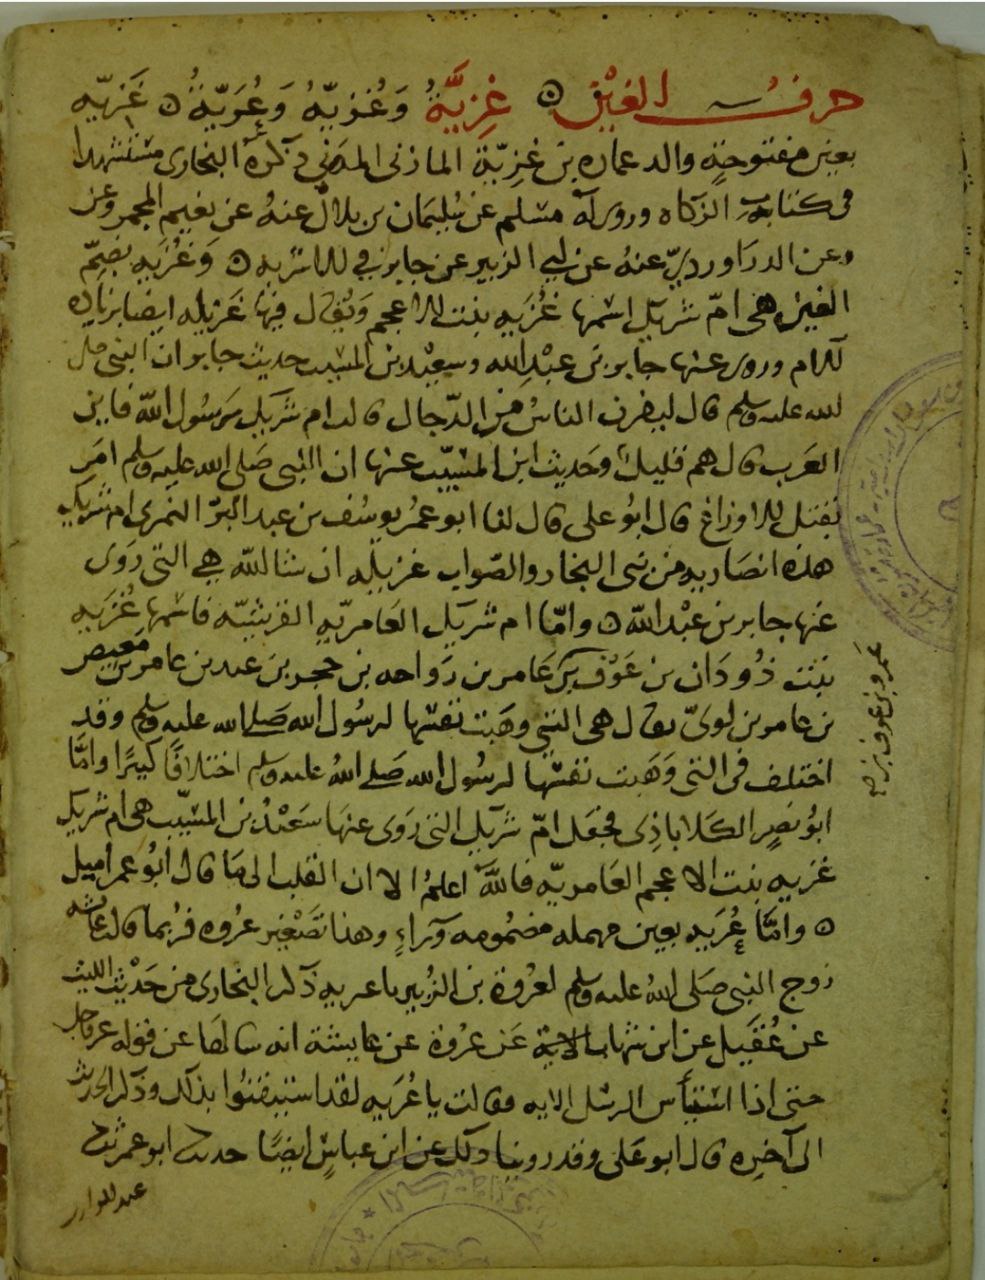 حرف الغين ٥ غَزِيَّةُ وَغُزَيّةُ وَعُرَيّةُ ٥ غَزيّه
بغين مفتوحةٍ والد عماره بن غَزِيّة المازنى المدني ذكره البخارى مستشهدا
فى كتاب الزكاه وروى له مسلم عن سُليمان بن بلال عنهُ عن نعيم المجمر وعن
وعن الدرَاوردىّ عنهُ عن ابي الزبير عن جابر في الاشربه ٥ وَغُزَيه بضمّ
الغين هى امّ شريك اسمها غُزَيه بنت الاعجم وَيُقال فيها غُزيله ايضا بزياده
لام وروى عنها جابر بن عبْدالله وسعيْد بن المسيب حديث جابر ان النبى صلى
الله عليه وسلم قال ليفرن الناسُ من الدّجال قالت ام شريك يرسُول الله فاين
العَرب قال هم قليلٌ وحَديث ابن المسيّب عنها ان النبى صَلى الله عليه وسلم امَر
بقتل الاوزاغ قال ابُو على قال لنا ابو عمُر يوسُف بن عبد البَرّ النمرى ام شريك
هذه انصَاريه من بنى النجار والصّواب غزيله ان شا الله هي التى رَوى
عنها جابر بن عبْد الله ٥ وامّا ام شريك العَامريّه القرشيّه فاسمها غُزَيه
بنت دُودَان بن عَوْف بن عَامر بن رَواحه بن حجر بن عبد بن عامر بن مَعيص
بن عامر بن لوىّ يقال هى التى وهَبت نفسَها لرسُول الله صَلى الله عليه وسلم وقد
اختلف فى التى وَهَبت نفسَها لرسُول الله صَلى اللهُ عليه وسلم اختلافًا كثيرًا وامَّا
ابُو نصرٍ الكَلاباذِى فجعَل امّ شريك التى رَوى عنهَا سَعيْدُ بن المسَيّب هى ام شريك
غزيه بنت الاعجم العَامريّه فاللهُ اعلمُ الا ان القلب الى مَا قال ابُو عمر اميل
٥ وامّا عُرَيه بعين مهمله مضمُومه وَرَاءٍ وهذا تصْغير عُروه فرُبما قالت عائشه
زوج النبى صَلى اللهُ عليه وسلم لعُروة بن الزُبير يا عريه ذكر البخارى من حَدْيث الليث
عن عُقَيل عن ابن شهاب عَن عرُوة عن عايشة انه سَالهَا عن قوله عز وجل
حتى اذا استَيأس الرسُل الايه فقالت يا عُرَيه لقد استيقنُوا بذلك وذكر الحديث
الى آخره قال ابو عَلى وقد روينا ذلك عن ابن عباسٍ ايضًا حدثنا ابو عمر ثنا
عبدالوارث
عمرو بن عوف بن